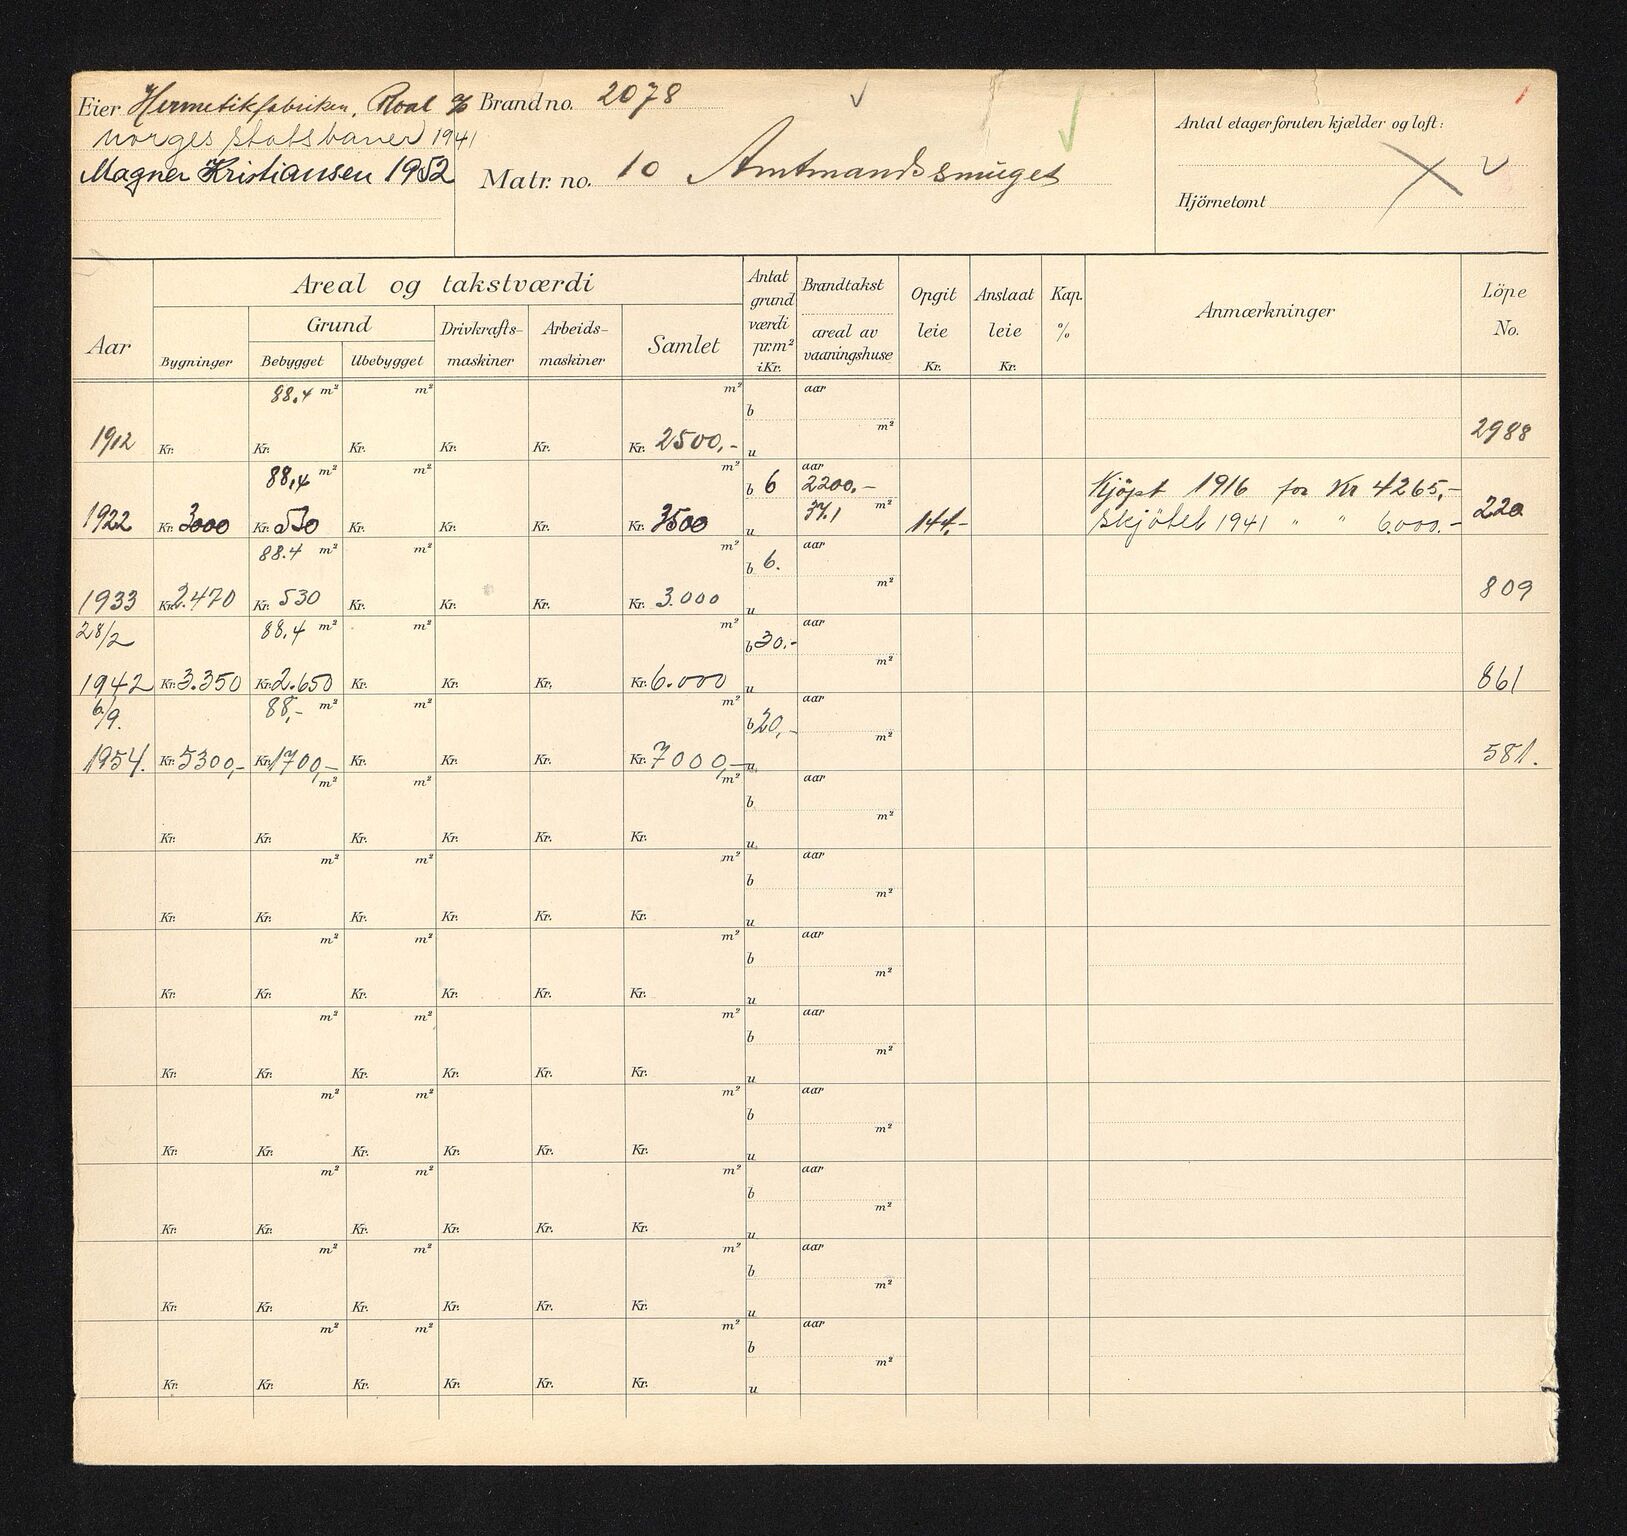 Eier Hermetikfabriken, Roal % Brand no. 2078
Norges statsbaner 1941
Magner Kristiansen 1952
Matr. no. 10 Amtmandssmuget
Antal etager foruten kjælder og loft:
Hjörnetomt
Areal og takstværdi
Aar
Bygninger
Grund
Bebygget Ubebygget
Drivkrafts-
maskiner
Arbeids-
maskiner
Samlet
Antat
grund
værdi
pr.m²
i Kr.
Brandtakst
areal av
vaaningshuse
Opgit
leie
Kr.
Anslaat
leie
Kr.
Kap.
%
Anmærkninger
Löpe
No.
88.4 m² m² m² b aar
m²
1912 Kr. Kr. Kr. Kr. Kr. Kr. 2500,- u 2988
88,4 m² m² m² b 6 aar 2200.- Kjöpt 1916 for Kr 4265,-
37.1 m²
1922 Kr. 3000 Kr. 530 Kr. Kr. Kr. Kr. 3500 u 144,- Skjötet 1941 " " 6.000.- 220
88.4 m² m² m² b 6. aar
m²
1933 Kr. 2.470 Kr. 530 Kr. Kr. Kr. Kr. 3.000 u 809
28/2 88.4 m² m² m² b 30.- aar
m²
1942 Kr. 3.350 Kr. 2.650 Kr. Kr. Kr. Kr. 6.000 u 861
6/9. 88,- m² m² m² b 20,- aar
m²
1954. Kr. 5300,- Kr. 1700,- Kr. Kr. Kr. Kr. 7000,- u 581.
m² m² m² b aar
m²
Kr. Kr. Kr. Kr. Kr. Kr. u
m² m² m² b aar
m²
Kr. Kr. Kr. Kr. Kr. Kr. u
m² m² m² b aar
m²
Kr. Kr. Kr. Kr. Kr. Kr. u
m² m² m² b aar
m²
Kr. Kr. Kr. Kr. Kr. Kr. u
m² m² m² b aar
m²
Kr. Kr. Kr. Kr. Kr. Kr. u
m² m² m² b aar
m²
Kr. Kr. Kr. Kr. Kr. Kr. u
m² m² m² b aar
m²
Kr. Kr. Kr. Kr. Kr. Kr. u
m² m² m² b aar
m²
Kr. Kr. Kr. Kr. Kr. Kr. u